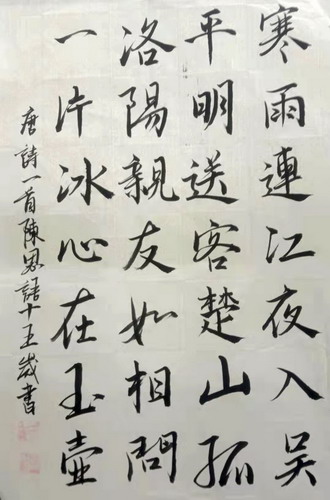 寒雨連江夜入吴
平明送客楚山孤
洛陽親友如相問
一片冰心在玉壶
唐詩一首陳思語十五歲書